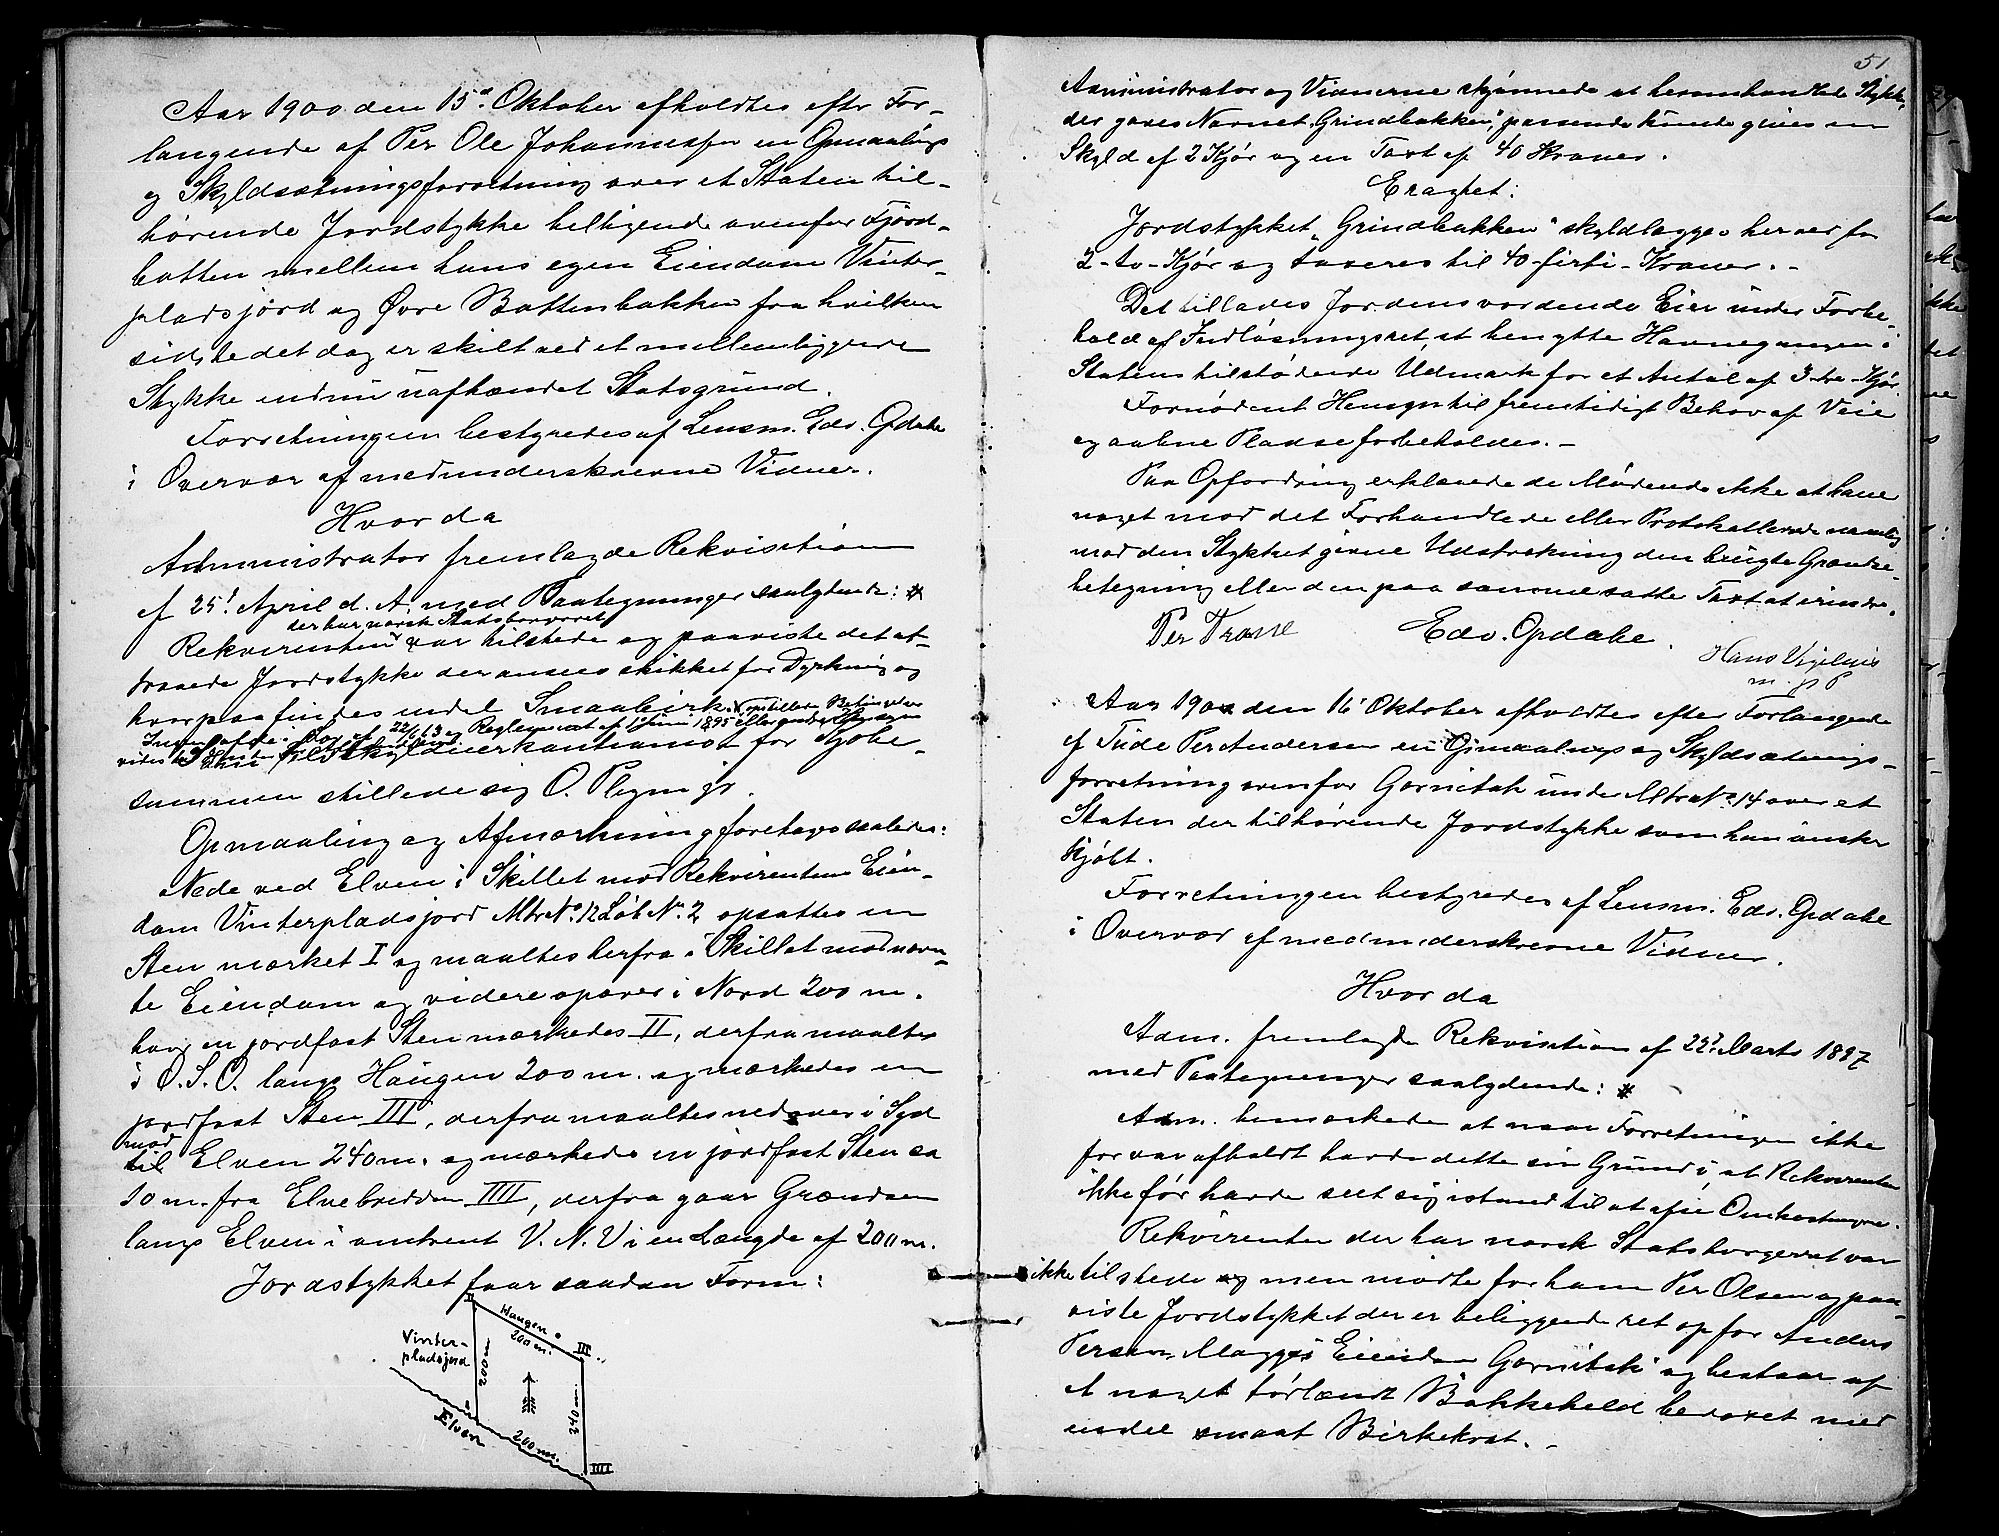 Aar 1900 den 15de Oktober afholdtes efter For-
langende af Per Ole Johannessen en Opmaalings
og Skyldsætningsforretning over et Staten til-
hørende Jordstykke beliggende ovenfor Fjord-
botten mellem hans egen Eiendom Vinter-
pladsjord og Øvre Bottenbakken fra hvilken
sidste det dog er skilt ved et mellemliggende
Stykke endnu uafhændet Statsgrund.
Forretningen bestyredes af Lensm. Edv. Opdahl
i Overvær af medunderskrevne Vidner.
Hvorda
Administrator fremlagde Rekvisition
af 25! April d. A. med Paategninger saalydende: *
der har norsk Statsborgerret
Rekvirenten var tilstede og paaviste det at-
traaede Jordstykke der ansees skikket for Dyrkning og
hvorpaa findes endel Smaabirk. opstillede Betingelser
Lov af 22/6 63 og Reglement af 1 Juni 1895 eller andre
Som Selvskyldnerkautionist for Kjøbe-
summen stillede sig O. Pleym jr.
Opmaaling og Afmærkning foretoges saaledes:
Nede ved Elven i Skillet mod Rekvirentens Eien-
dom Vinterpladsjord Mtr.No. 12 Løb No. 2 opsattes en
Sten mærket I og maaltes herfra i Skillet mod nævn-
te Eiendom og videre opover i Nord 200 m.
hvor en jordfast Sten mærkedes II, derfra maaltes
i O.S.O. langs Haugen 200 m. og mærkedes en
jordfast Sten III, derfra maaltes nedover i Syd
mod
til Elven 240 m. og mærkedes en jordfast Sten ca
10 m. fra Elvebredden IIII, derfra gaar Grændsen
langs Elven i omtrent V.N.V i en Længde af 200 m.
Jordstykket faar saadan Form:
II
Haugen
200 m.
III
Vinter-
pladsjord
200 m
240 m.
I
Elven
200 m.
IIII
51
Administrator og Vidnerne skjønnede at heromhandlede Stykke,
der gaves Navnet "Grindbakken", passende kunde gives en
Skyld af 2 Kjør og en Taxt af 40 Kroner.
Eragtet:
Jordstykket "Grindbakken" skyldlægges herved for
2-to-Kjør og taxeres til 40-firti-Kroner.-
Det tillades Jordens vordende Eier under Forbe-
hold af Indløsningsret, at benytte Havnegangen i
Statens tilstødende Udmark for et Antal af 3-tre-Kjør.
Fornødent Hensyn til fremtidigt Behov af Veie
og aabne Pladse forbeholdes.-
Paa Opfordring erklærede de Mødende ikke at have
noget mod det Forhandlede eller Protokollerede nemlig
mod den Stykket givne Udstrækning den brugte Grændse-
betegning eller den paa samme satte Taxt at erindre.
Per Trane Edv. Opdahl.
Hans Vigelius
m. p. P
Aar 1900 den 16' Oktober afholdtes efter Forlangende
af Tude Per Andersen en Opmaalings og Skyldsætnings-
forretning ovenfor Gornitak under Mtr.No. 14 over et
Staten der tilhørende Jordstykke som han ønsker
kjøbt.
Forretningen bestyredes af Lensm. Edv. Opdahl
i Overvær af medunderskrevne Vidner.
Hvorda
Adm. fremlagde Rekvisition af 22! Marts 1897
med Paategninger saalydende: *
Adm. bemærkede at naar Forretningen ikke
før var afholdt havde dette sin Grund i, at Rekvirenten
ikke før havde seet sig istand til at afse Omkostningerne.
Rekvirenten der har norsk Statsborgerret var
ikke tilstede og men mødte for ham Per Olsen og paa-
viste Jordstykket der er beliggende ret op for Anders
Persen Magga's Eiendom Gornitak og bestaar af
et noget tørlændt Bakkeheld bevoxet med
endel smaat Birkekrat.-